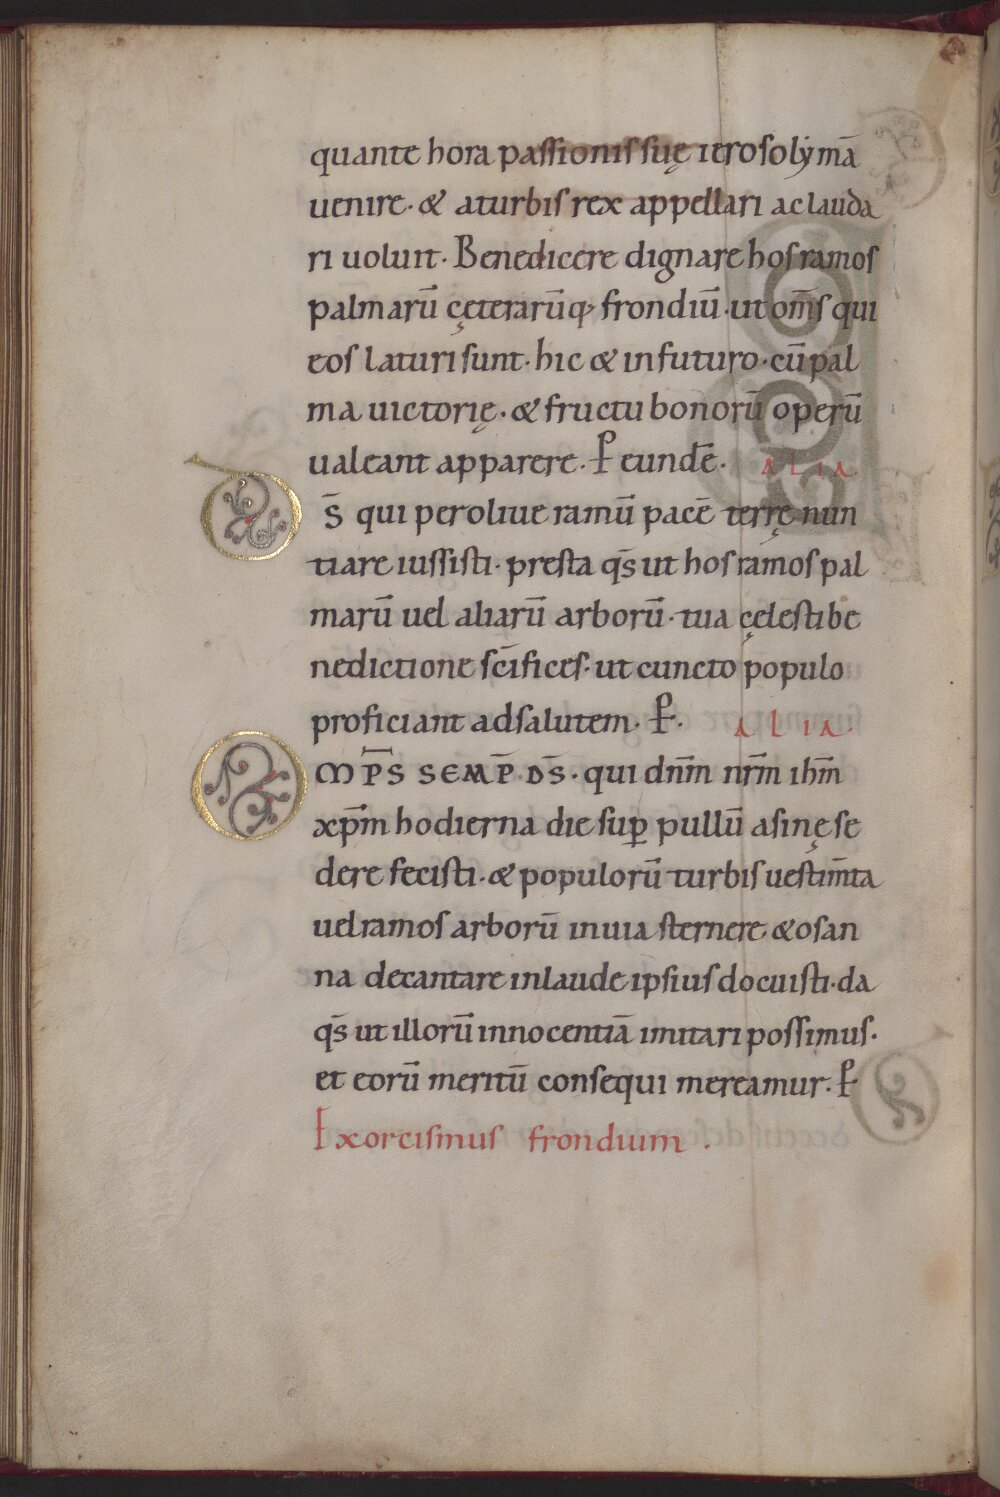 quante hora passionis suę ierosolymā
uenire· & aturbis rex appellari ac lauda
ri uoluit· Benedicere dignare hos ramos
palmarū çeterarūq; frondiū· ut om̄s qui
eos laturi sunt· hic & in futuro· cū pal
ma uictorię· & fructu bonorū operū
ualeant apparere· P eundē· ALIA
D s̄ qui per oliue ramū pacē terrę nun
tiare iussisti· presta qs̄ ut hos ramos pal
marū uel aliarū arborū· tua çelesti be
nedictione sc̄ifices· ut cuncto populo
proficiant ad salutem· P· ALIA·
O MP̄S SEMP̄ DS̄· qui dnm̄ nrm̄ ihm̄
xp̄m hodierna die suꝑ pullū asinę se
dere fecisti· & populorū turbis uestim̄ta
uel ramos arborū in uia sternere· & osan
na decantare in laude ipsius docuisti· da
qs̄ ut illorū innocentiā imitari possimus·
et eorū meritū consequi mereamur· P
Exorcismus frondium ·